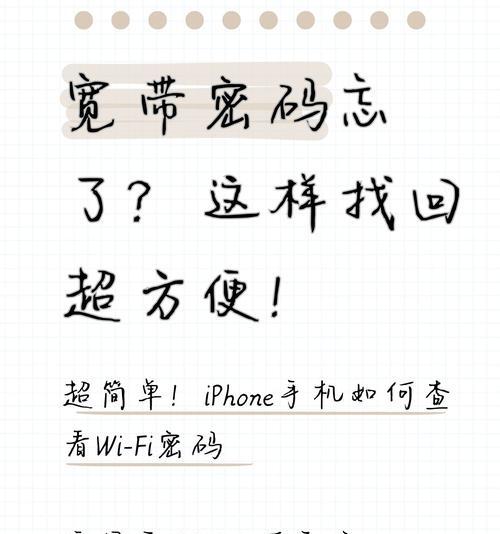 宽带密码忘
了？这样找回
超方便！
超简单！iPhone手机如何查
看Wi-Fi密码